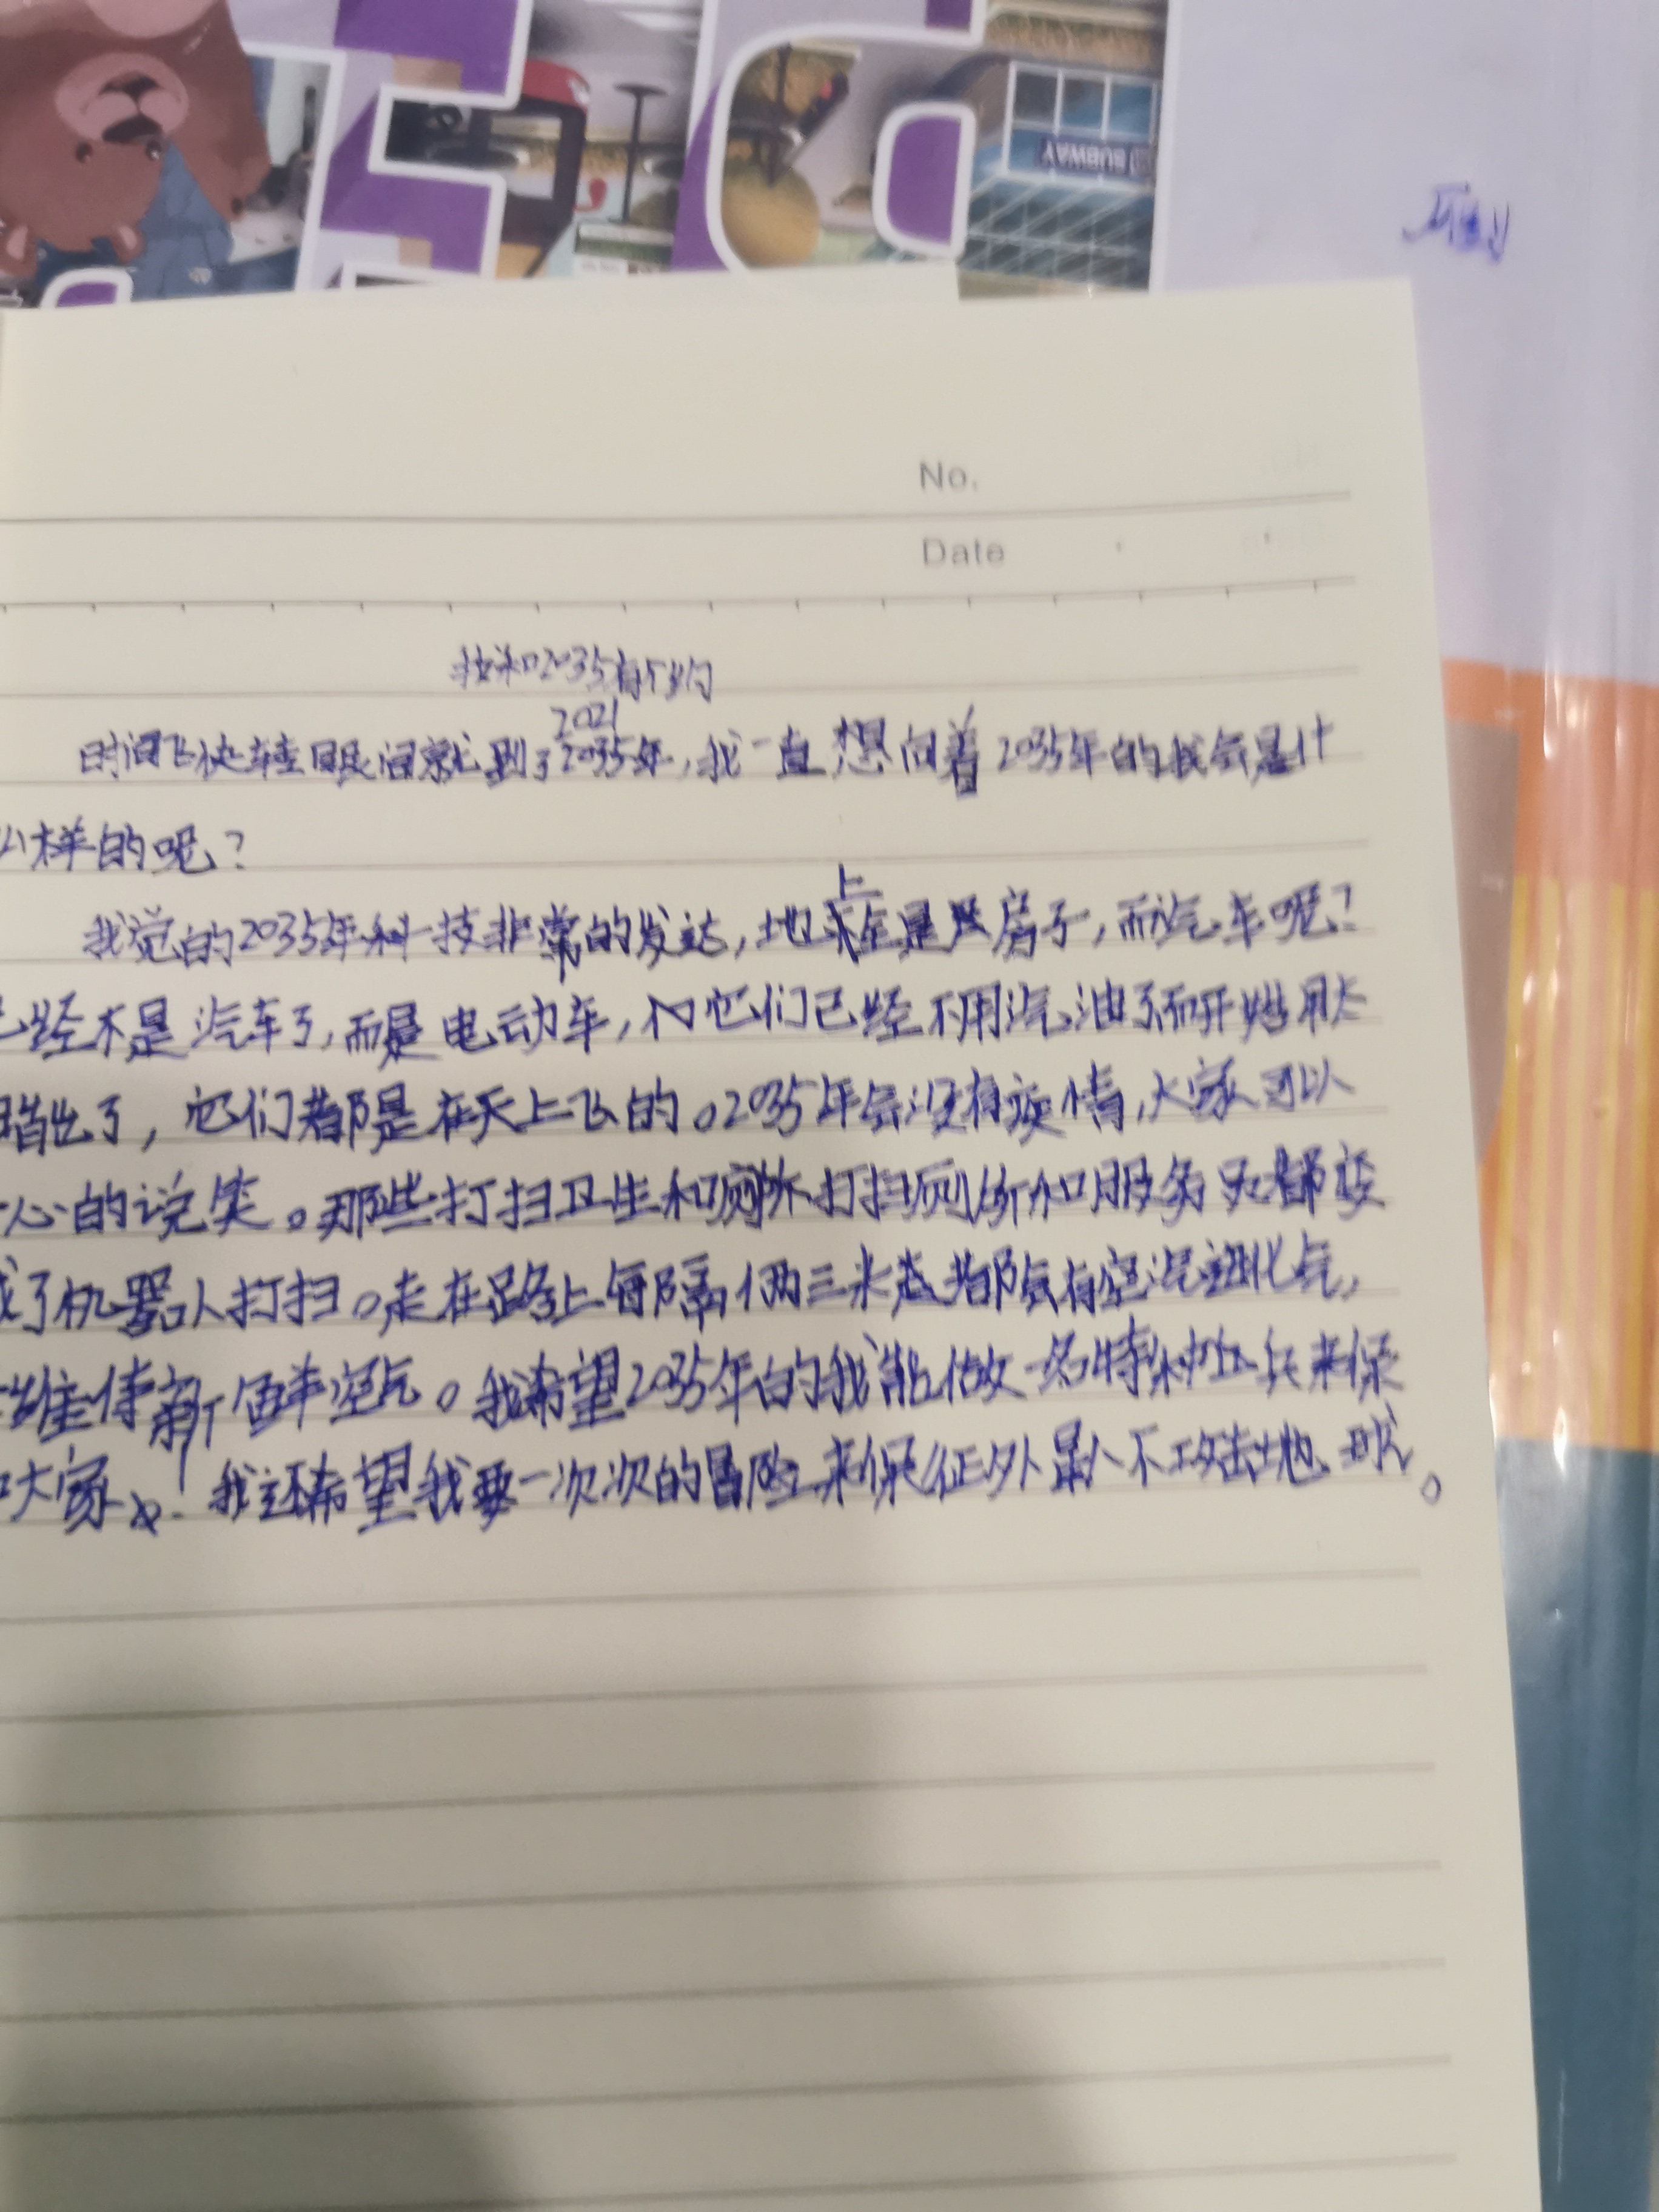 SUBWAY
No.
Date
我和2035有个约
2021
时间飞快转眼间就到了2035年，我一直想向着2035年的我会是什
么样的呢？
上
我觉的2035年科技非常的发达，地全是房子，而汽车呢？
已经不是汽车了，而是电动车，它们已经不用汽油了而开始用太
出了，它们都是在天上飞的。2035年会没有疫情，大家可以
心的说笑。那些打扫卫生和厕所打扫厕所和服务员都变
成了机器人打扫。走在路上每隔俩三米都会有空汽进化气，
维侍新鲜空气。我希望2035年的我能做一名特种兵来保
大家！我还希望我要一次次的冒险来保征外星人不攻击地球。